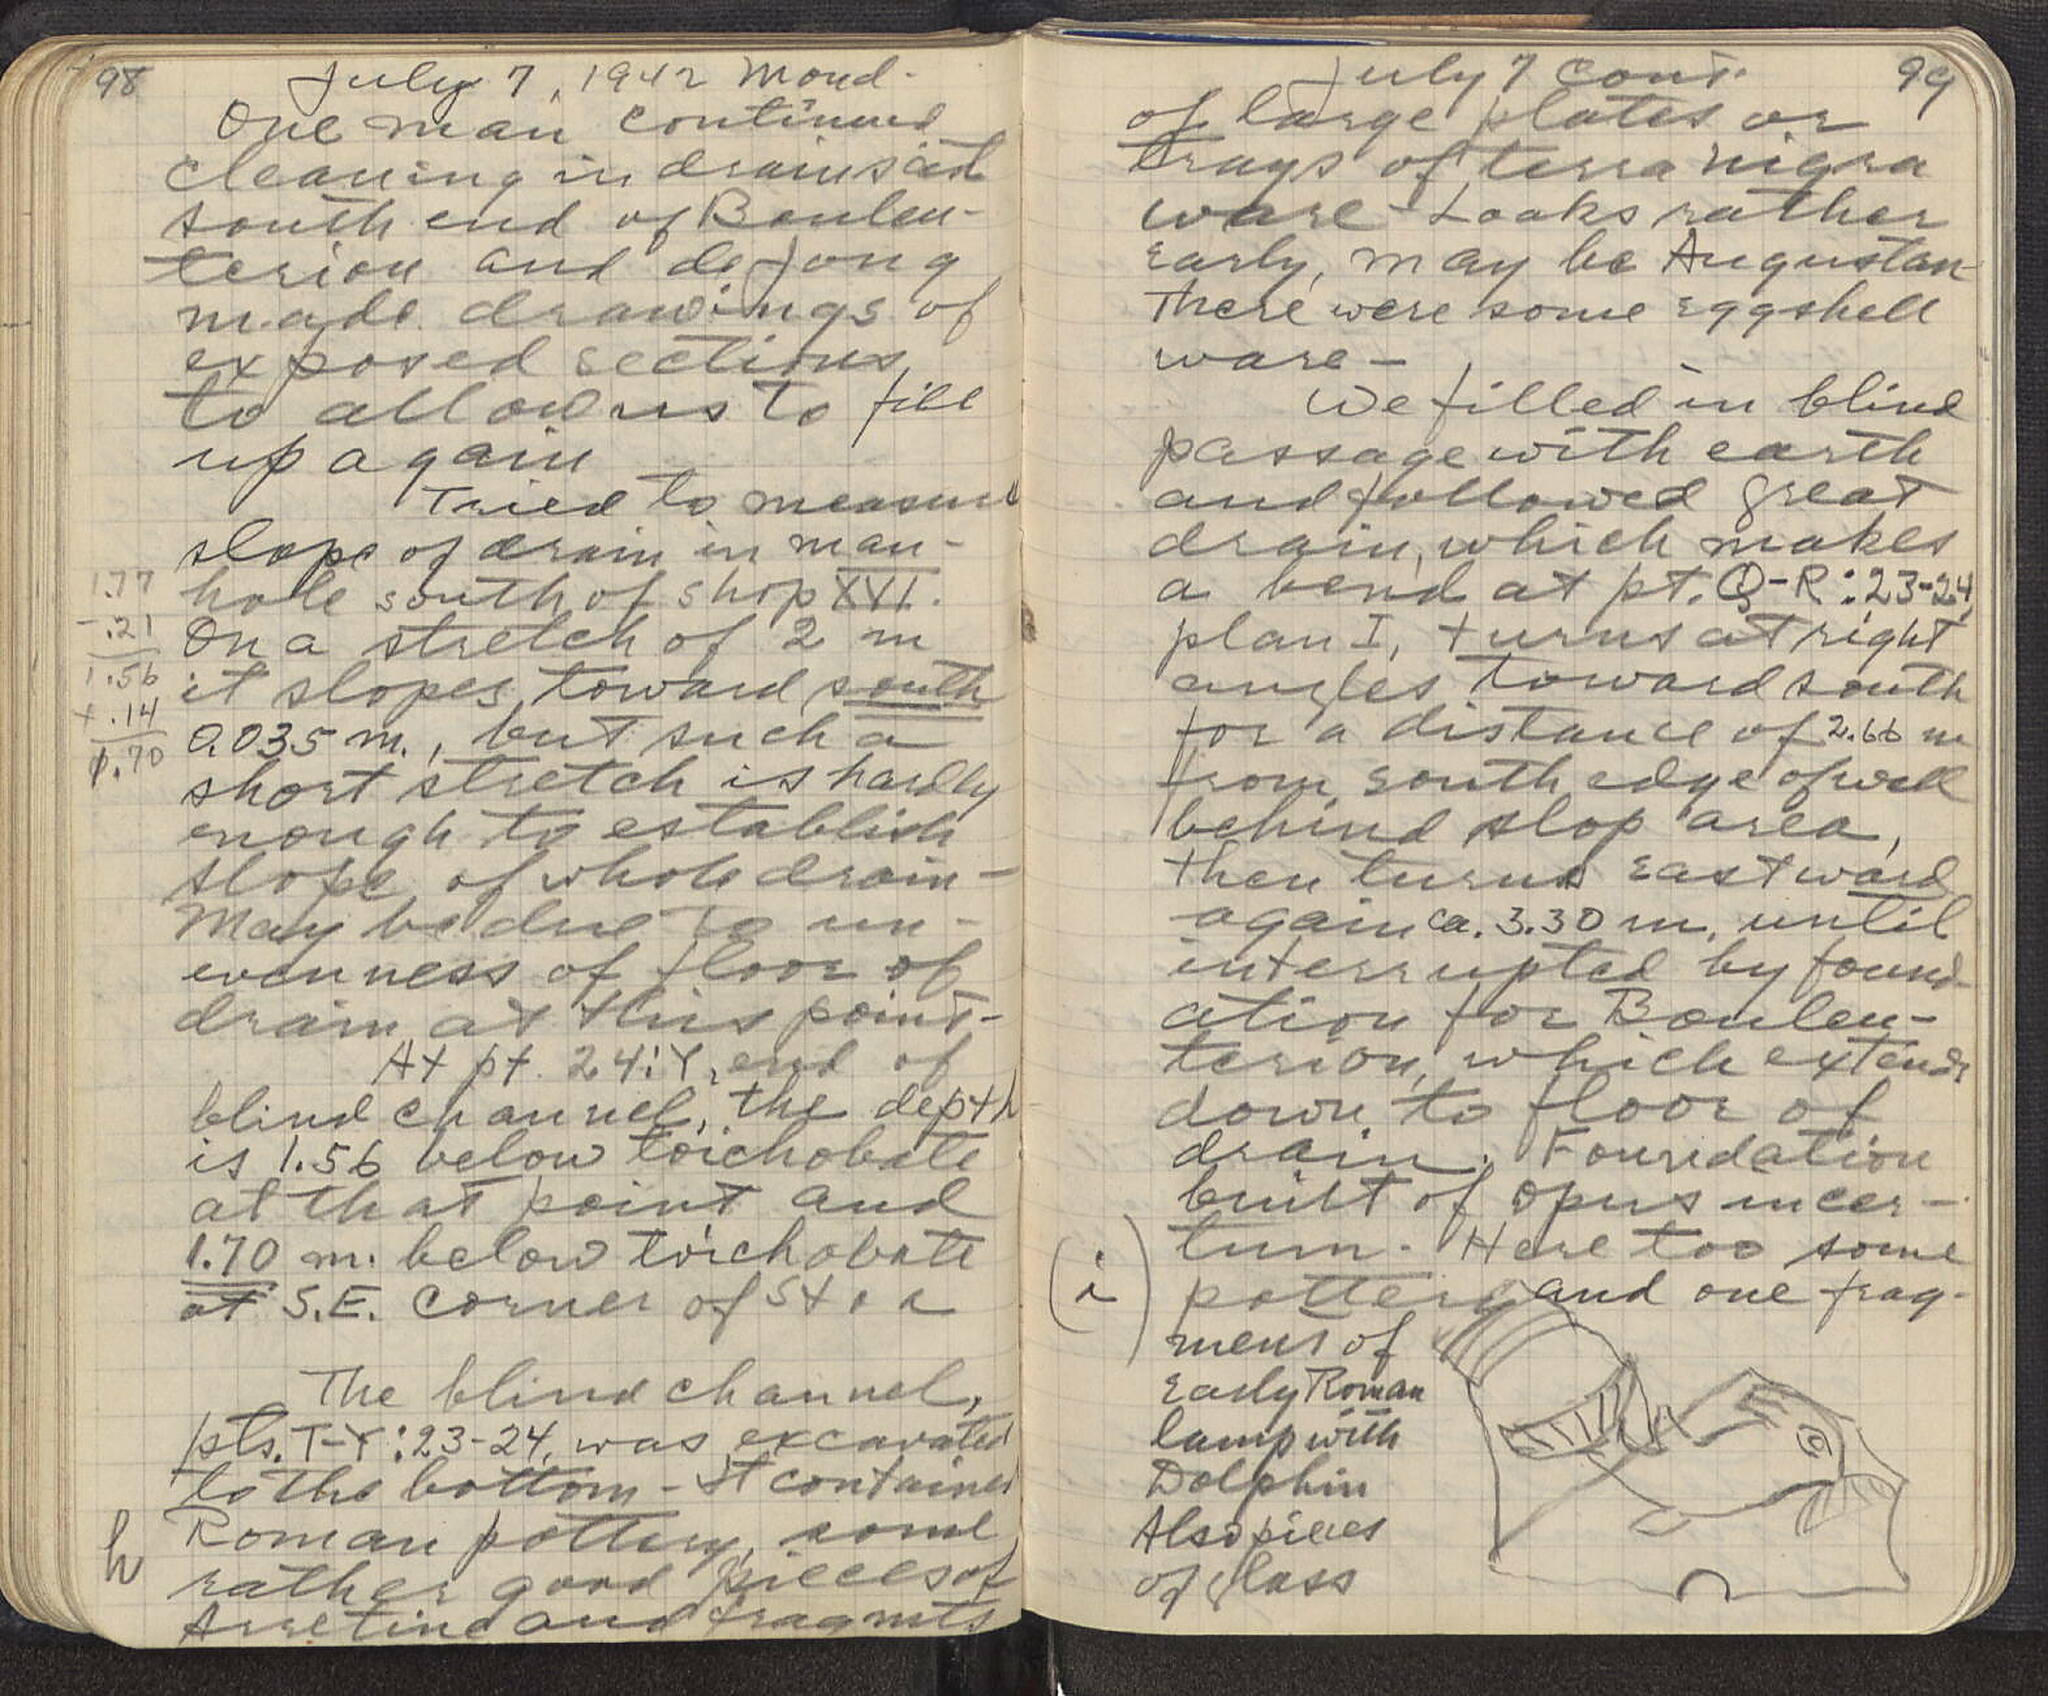 98
July 7, 1942 Mond.
One man continued
cleaning in drains at
south end of Bouleu-
terion and de Jong
made drawings of
exposed sections
to allow us to fill
up again
Tried to measure
slope of drain in man-
hole south of shop XVI.
On a stretch of 2 m
it slopes toward south
0.035 m., but such a
short stretch is hardly
enough to establish
slope of whole drain -
May be due to un-
evenness of floor of
drain at this point -
At pt. 24:Y, end of
blind channel, the depth
is 1.56 below toichobate
at that point and
1.70 m. below toichobate
at S.E. corner of Stoa
The blind channel,
pts. T-Y:23-24, was excavated
to the bottom - It contained
Roman pottery, some
rather good pieces of
Arretine and fragmts
1.77
-.21
1.56
+.14
1.70
h
July 7 cont. 99
of large plates or
trays of terra nigra
ware - Looks rather
early, may be Augustan
There were some eggshell
ware -
We filled in blind
passage with earth
and followed great
drain, which makes
a bend at pt. Q-R:23-24,
plan I, turns at right
angles toward south
for a distance of 2.66 m
from south edge of wall
behind slop area,
then turns eastward
again ca. 3.30 m. until
interrupted by found-
ation for Bouleu-
terion, which extends
down to floor of
drain. Foundation
built of opus incer-
tum. Here too some
(i) pottery and one frag-
ment of
Early Roman
lamp with
Dolphin
Also pieces
of glass